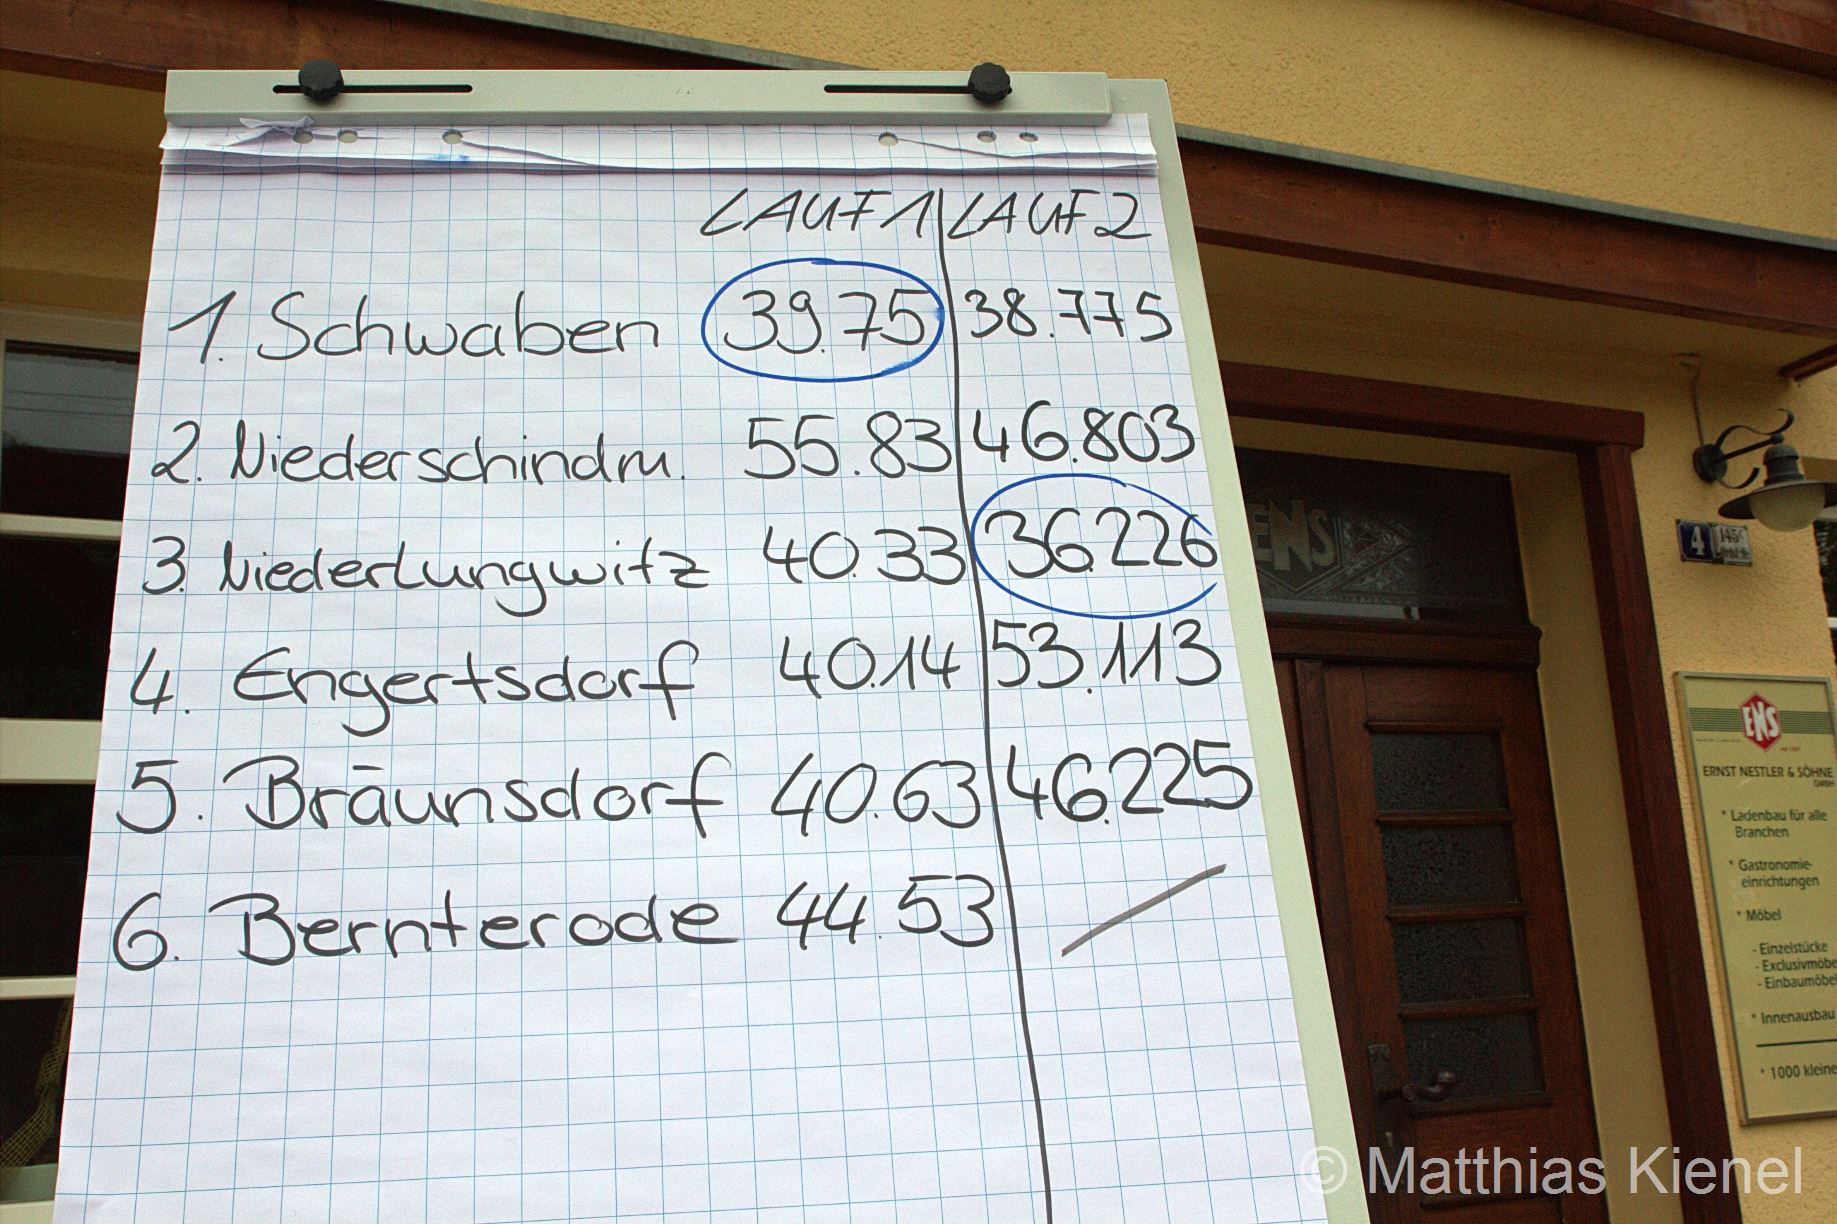 LAUF 1 LAUF 2
1. Schwaben 39.75 38.775
2. Niederschindm. 55.83 46.803
3. Niederlungwitz 40.33 36.226
4. Engertsdorf 40.14 53.113
5. Bräunsdorf 40.63 46.225
6. Bernterode 44.53 /
ENS
4
ENS
ERNST NESTLER & SÖHNE
GMBH
* Ladenbau für alle
Branchen
* Gastronomie-
einrichtungen
* Möbel
- Einzelstücke
- Exclusivmöbe
- Einbaumöbe
* Innenausbau
* 1000 kleine
© Matthias Kienel